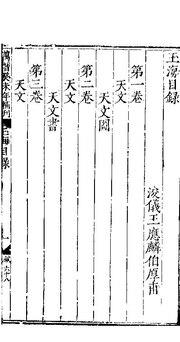 玉海目錄
浚儀王應麟伯厚甫
第一卷
天文
天文圖
第二卷
天文
天文書
第三卷
天文
天文
玉海目錄